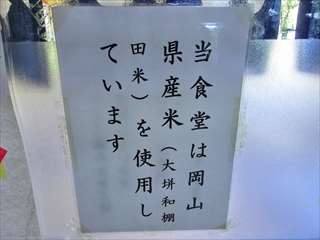 当食堂は岡山
県産米（大垪和棚
田米）を使用し
ています